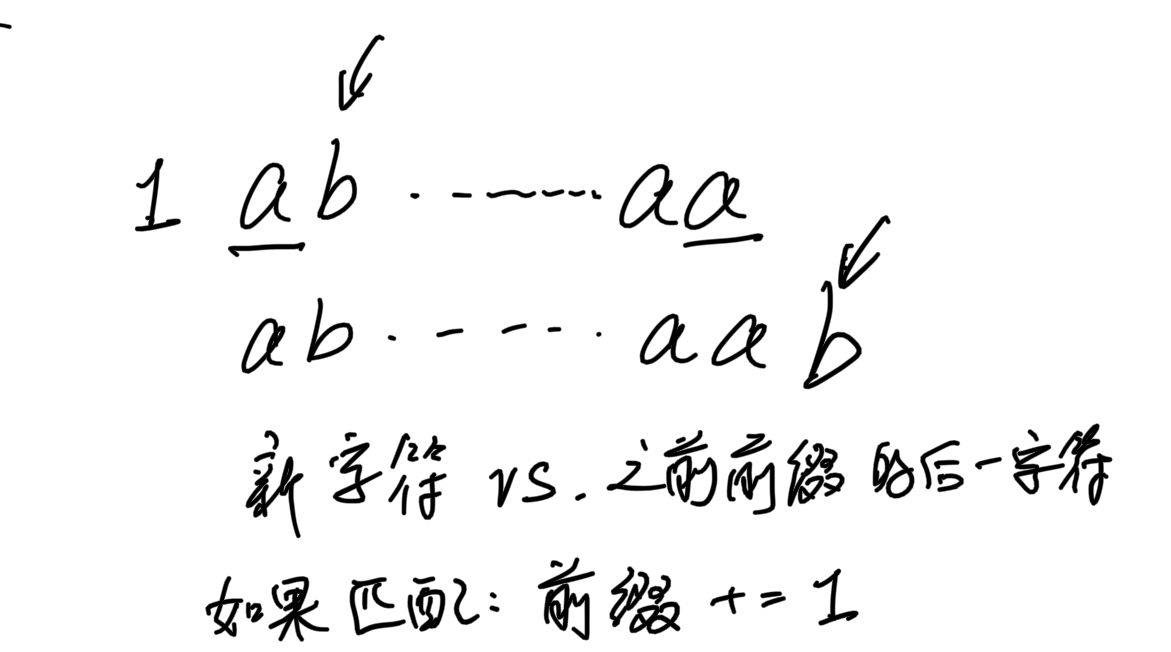 1 ab ------ aa
ab ------ aab
新字符 vs. 之前前缀的后一字符
如果匹配: 前缀 += 1